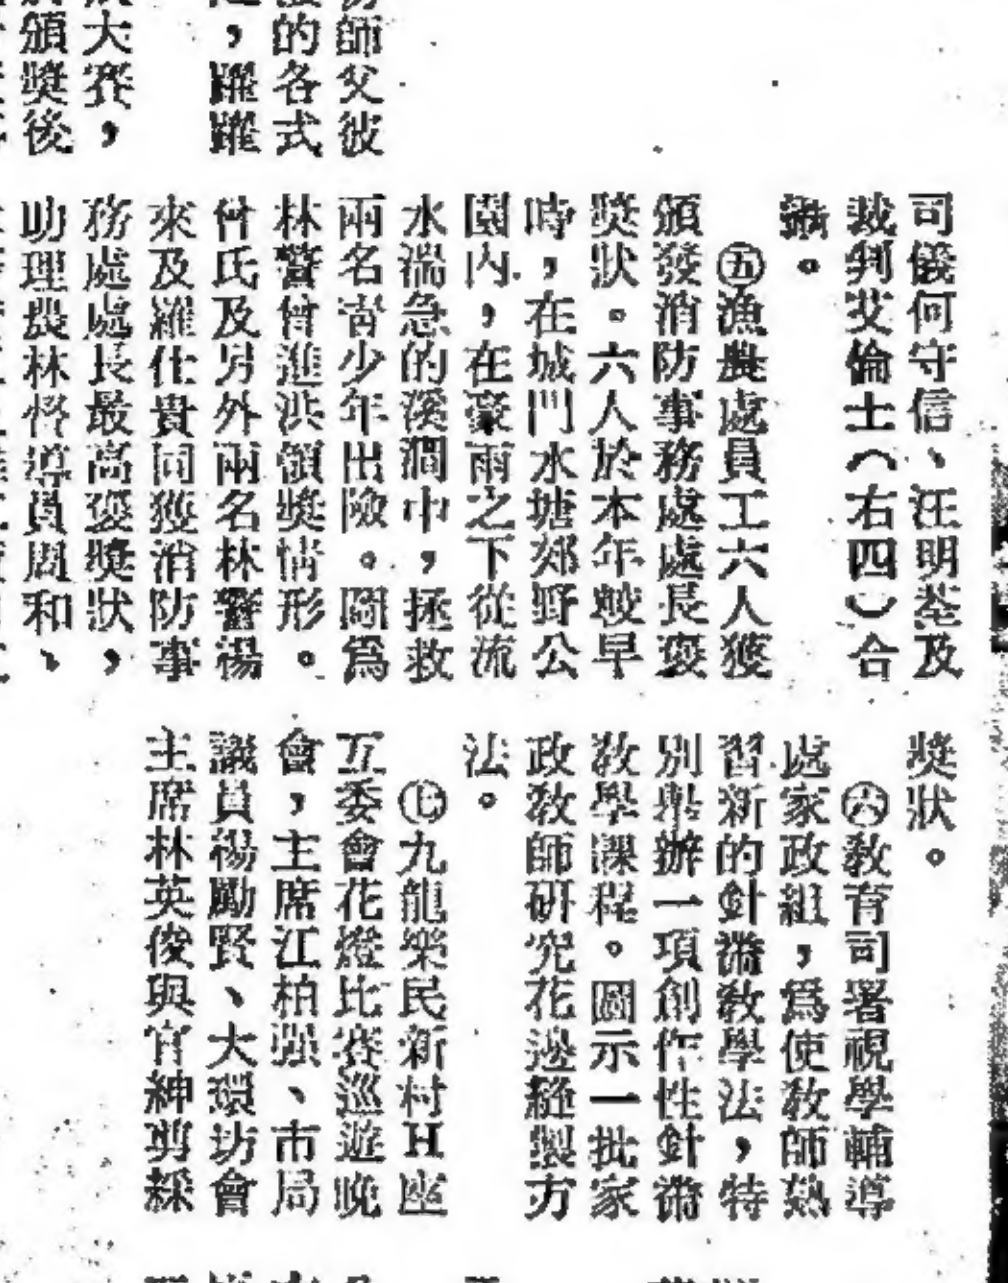 務師父彼
的各式
，躍躍
大賽，
頒獎後
司儀何守信、汪明荃及
裁判艾倫士（右四）合
攝。
㊄漁農處員工六人獲
頒發消防事務處處長褒
獎狀。六人於本年較早
時，在城門水塘郊野公
園內，在豪雨之下從流
水湍急的溪澗中，拯救
兩名青少年出險。圖爲
林警曾進洪領獎情形。
曾氏及另外兩名林警湯
來及羅仕貴同獲消防事
務處處長最高褒獎狀，
助理農林督導員周和、
獎狀。
㊅教育司署視學輔導
處家政組，爲使教師熟
習新的針黹教學法，特
別舉辦一項創作性針黹
教學課程。圖示一批家
政教師研究花邊縫製方
法。
㊆九龍樂民新村H座
互委會花燈比賽巡遊晚
會，主席江柏强、市局
議員楊勵賢、大環坊會
主席林英俊與官紳剪綵